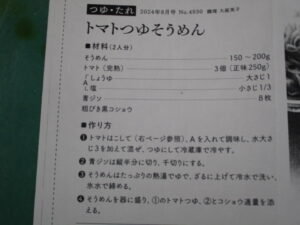 つゆ・たれ
2024年8月号 No.4930
トマトつゆそうめん
■材料(2人分)
そうめん 150〜200g
トマト(完熟) 3個(正味250g)
A しょうゆ 大さじ1
塩 小さじ1/3
青ジソ 8枚
粗びき黒コショウ
■作り方
❶トマトはこして(右ページ参照)、Aを入れて調味し、水大さ
じ3を加えて混ぜ、つゆにして冷蔵庫で冷やす。
❷青ジソは縦半分に切り、千切りにする。
❸そうめんはたっぷりの熱湯でゆで、ざるに上げて冷水で洗い、
氷水で締める。
❹そうめんを器に盛り、①のトマトつゆ、②とコショウ適量を添
える。